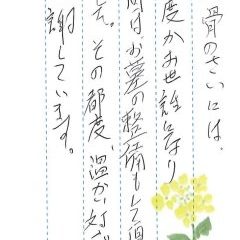 骨のさいには、
度かお世話になり
お墓の整備もして
た。その都度、温かい対
謝しています。